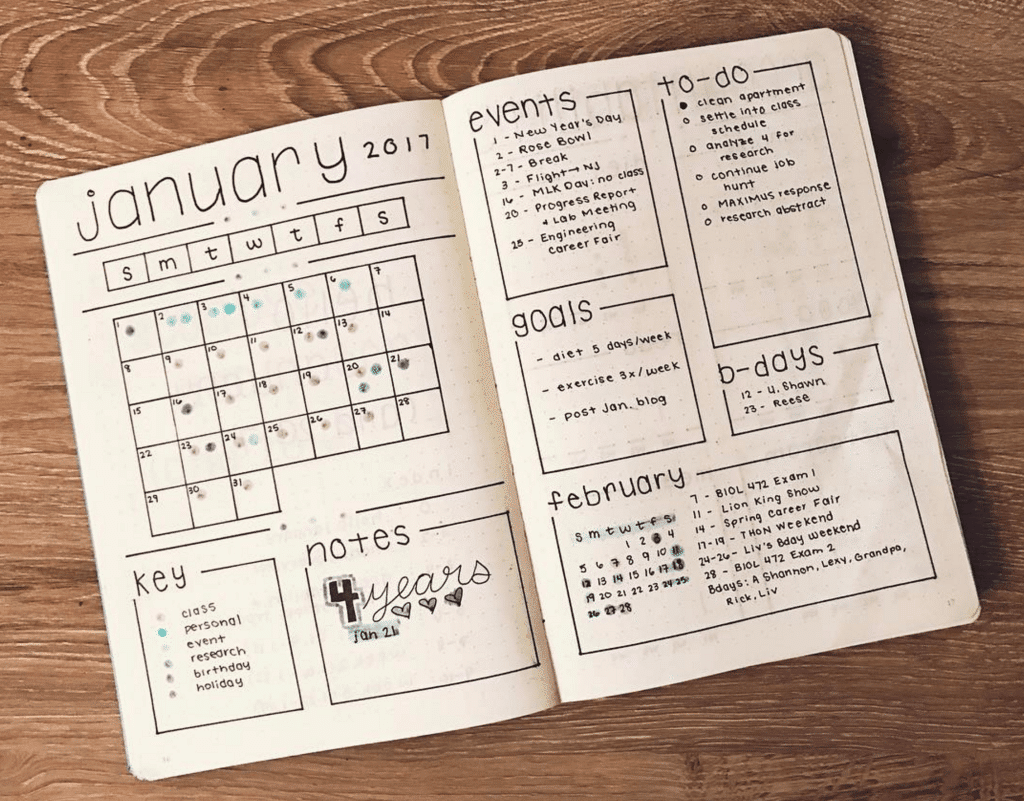 january 2017
s m t w t f s
1 2 3 4 5 6 7
8 9 10 11 12 13 14
15 16 17 18 19 20 21
22 23 24 25 26 27 28
29 30 31
key
class
personal
event
research
birthday
holiday
notes
4 years
Jan 21
events
1 - New Year's Day
2 - Rose Bowl
2-7 - Break
3 - Flight → NJ
16 - MLK Day: no class
20 - Progress Report
+ Lab Meeting
25 - Engineering
career Fair
to-do
clean apartment
settle into class
schedule
analyze 4 for
research
continue job
hunt
MAXIMUS response
research abstract
goals
- diet 5 days/week
- exercise 3x/week
- post Jan. blog
b-days
12 - U. Shawn
23 - Reese
february
s m t w t f s
1 2 3 4
5 6 7 8 9 10 11
12 13 14 15 16 17 18
19 20 21 22 23 24 25
26 27 28
7 - BIOL 472 Exam 1
11 - Lion King Show
14 - Spring Career Fair
17-19 - THON Weekend
24-26 - Liv's Bday weekend
28 - BIOL 472 Exam 2
Bdays: A Shannon, Lexy, Grandpa,
Rick, Liv
17